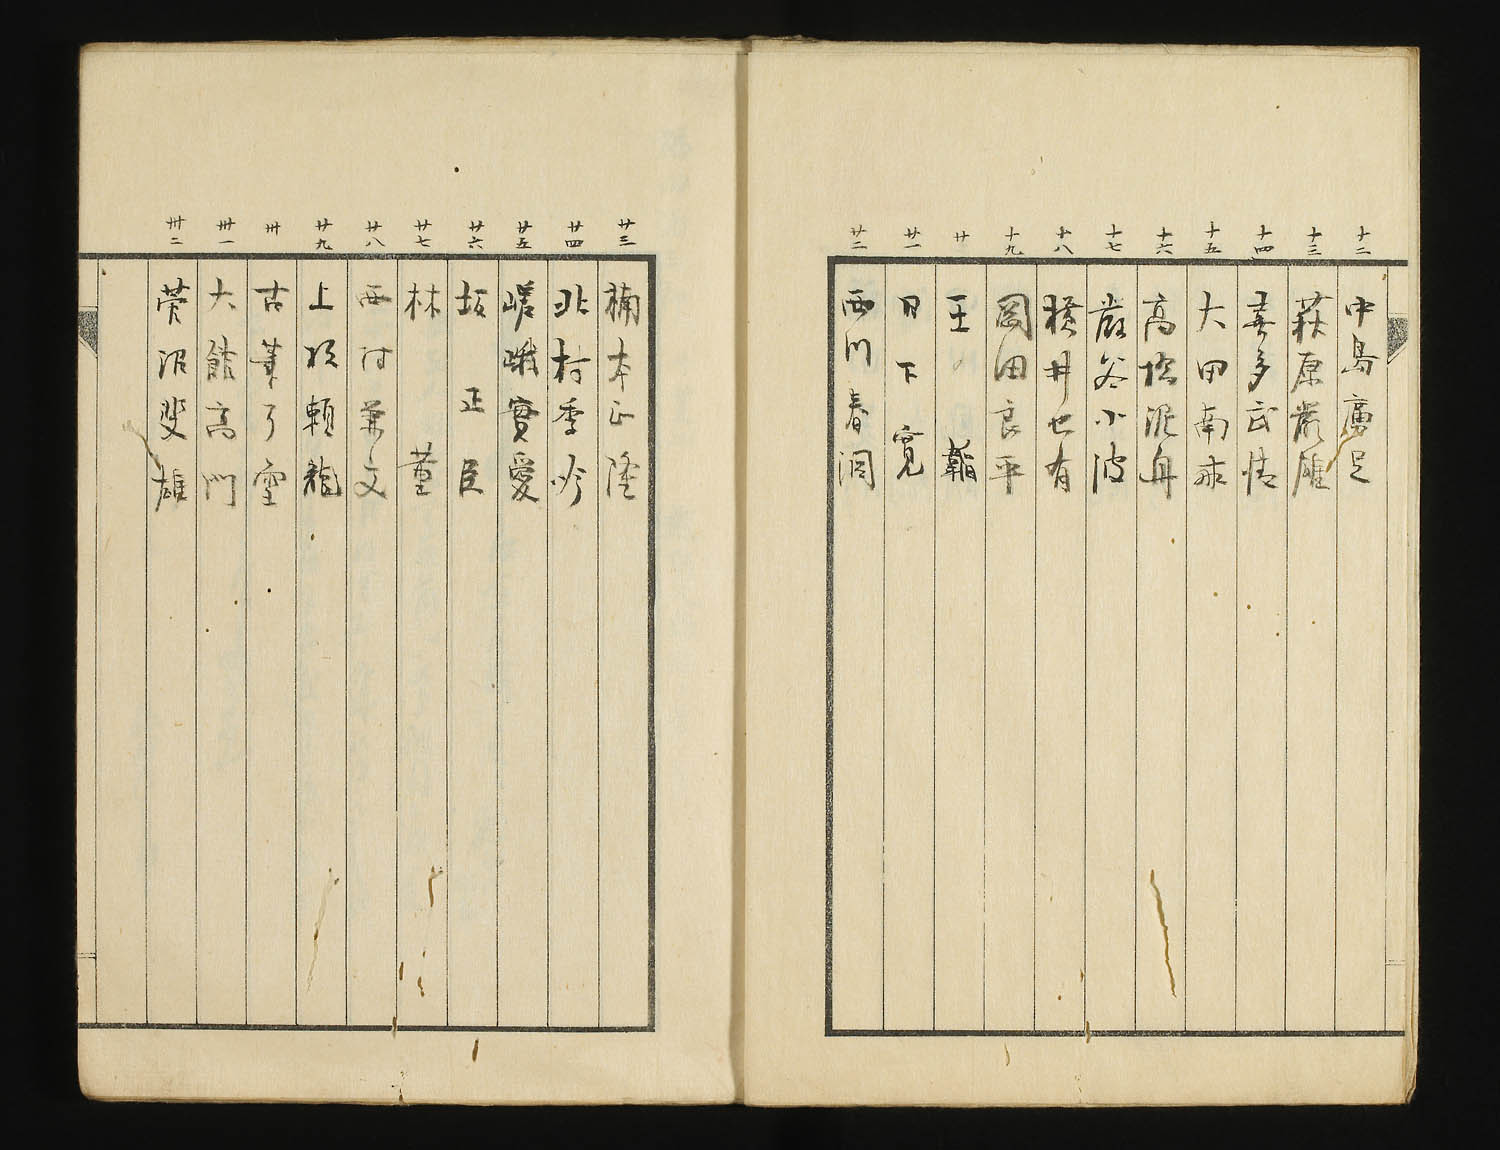 十二 中島廣足
十三 萩原嚴雄
十四 喜多武清
十五 大田南畝
十六 高橋泥舟
十七 巌谷小波
十八 横井也有
十九 岡田良平
廿 王 韜
廿一 日下寛
廿二 西川春洞
廿三 楠本正隆
廿四 北村季吟
廿五 嵯峨實愛
廿六 坂正臣
廿七 林 董
廿八 西村兼文
廿九 上杉頼龍
卅 古筆了雪
卅一 大館高門
卅二 菅沼斐雄